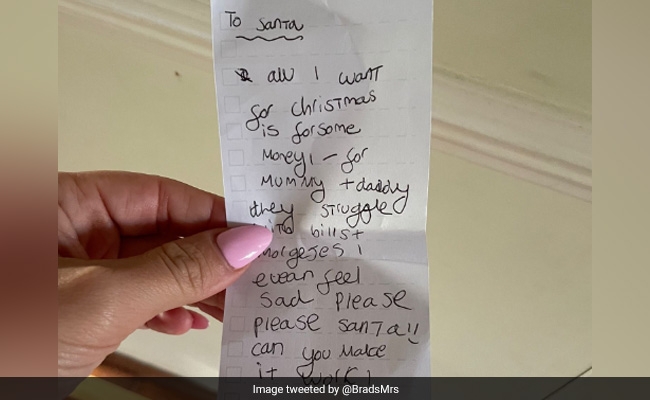 To Santa
all I want
for christmas
is forsome
Money! - for
MUMMY + daddy
they struggle
bills +
morgeses I
evean feel
sad please
please santa!!
can you Make
it work I
Image tweeted by @BradsMrs